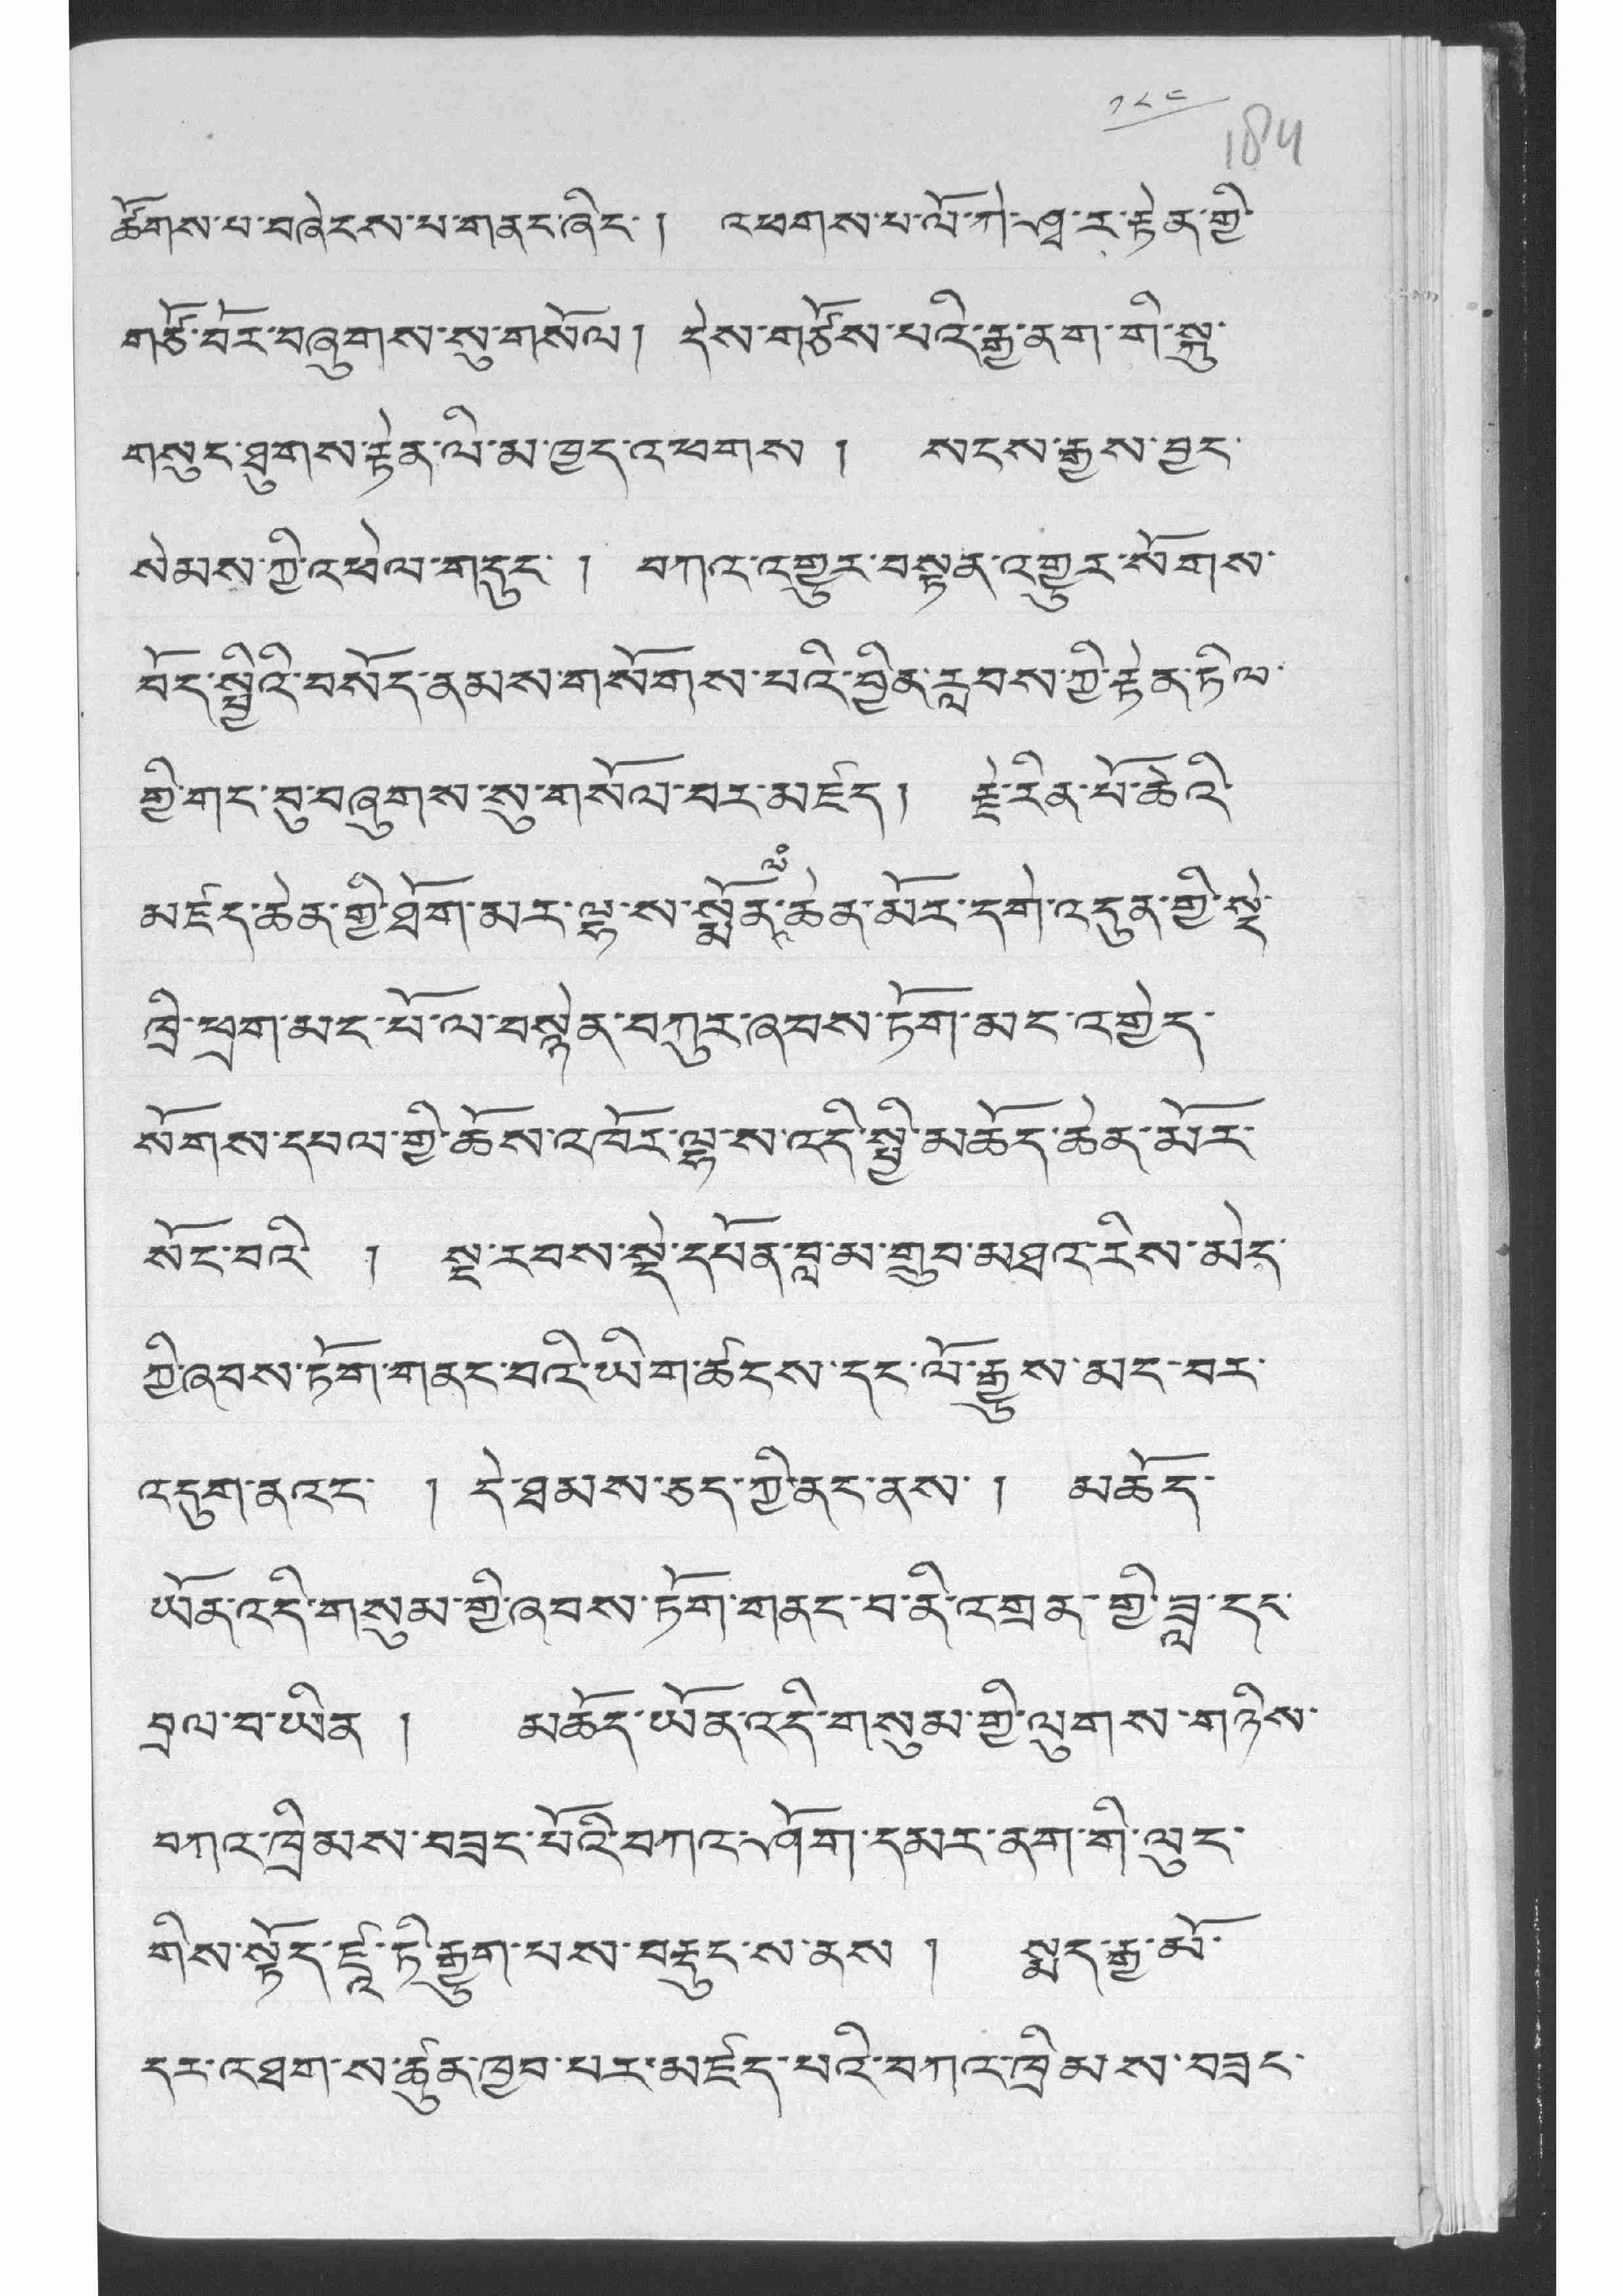 ༡༨༩
184
ཚོགས་པ་བཞེངས་པ་གནང་ཞིང་། འཕགས་པ་ལོ་ཀེ་ཤྭ་ར་རྟེན་གྱི་
གཙོ་བོར་བཞུགས་སུ་གསོལ། དེས་གཙོས་པའི་རྒྱ་ནག་གི་སྐུ་
གསུང་ཐུགས་རྟེན་ལི་མ་ཁྱད་འཕགས། སངས་རྒྱས་བྱང་
སེམས་ཀྱི་འཕེལ་གདུང་། བཀའ་འགྱུར་བསྟན་འགྱུར་སོགས་
བོད་སྤྱིའི་བསོད་ནམས་གསོགས་པའི་བྱིན་རླབས་ཀྱི་རྟེན་ཏིལ་
གྱི་གང་བུ་བཞུགས་སུ་གསོལ་བར་མཛད། རྗེ་རིན་པོ་ཆེའི་
མཛད་ཆེན་གྱི་ཐོག་མར་ལྷ་ས་སྨོན་ལམ་ཆེན་མོར་དགེ་འདུན་གྱི་སྡེ་
ཁྲི་ཕྲག་མང་པོ་ལ་བསྙེན་བཀུར་ཞབས་ཏོག་མང་འགྱེད་
སོགས་དཔལ་གྱི་ཆོས་འཁོར་ལྷ་ས་འདི་སྤྱི་མཆོད་ཆེན་མོར་
སོང་བའི ། སྔ་རབས་སྡེ་དཔོན་བླ་མ་གྲུབ་མཐའ་རིས་མེད་
ཀྱི་ཞབས་ཏོག་གནང་བའི་ཡིག་ཚངས་དང་ལོ་རྒྱུས་མང་བར་
འདུག་ནའང་ ། དེ་ཐམས་ཅད་ཀྱི་ནང་ནས་ ། མཆོད་
ཡོན་འདི་གསུམ་གྱི་ཞབས་ཏོག་གནང་བ་ནི་འགྲན་གྱི་ཟླ་དང་
བྲལ་བ་ཡིན ། མཆོད་ཡོན་འདི་གསུམ་གྱི་ལུགས་གཉིས་
བཀའ་ཁྲིམས་བཟང་པོའི་བཀའ་ཤོག་དམར་ནག་གི་ལུང་
གིས་སྟོད་ཛཱ་ཏི་རྒྱུག་པས་བརྡུང་ས་ནས ། སྨད་རྒྱ་མོ་
དར་འཐག་ས་ཚུན་ཁྱབ་པར་མཛད་པའི་བཀའ་ཁྲིམས་བཟང་